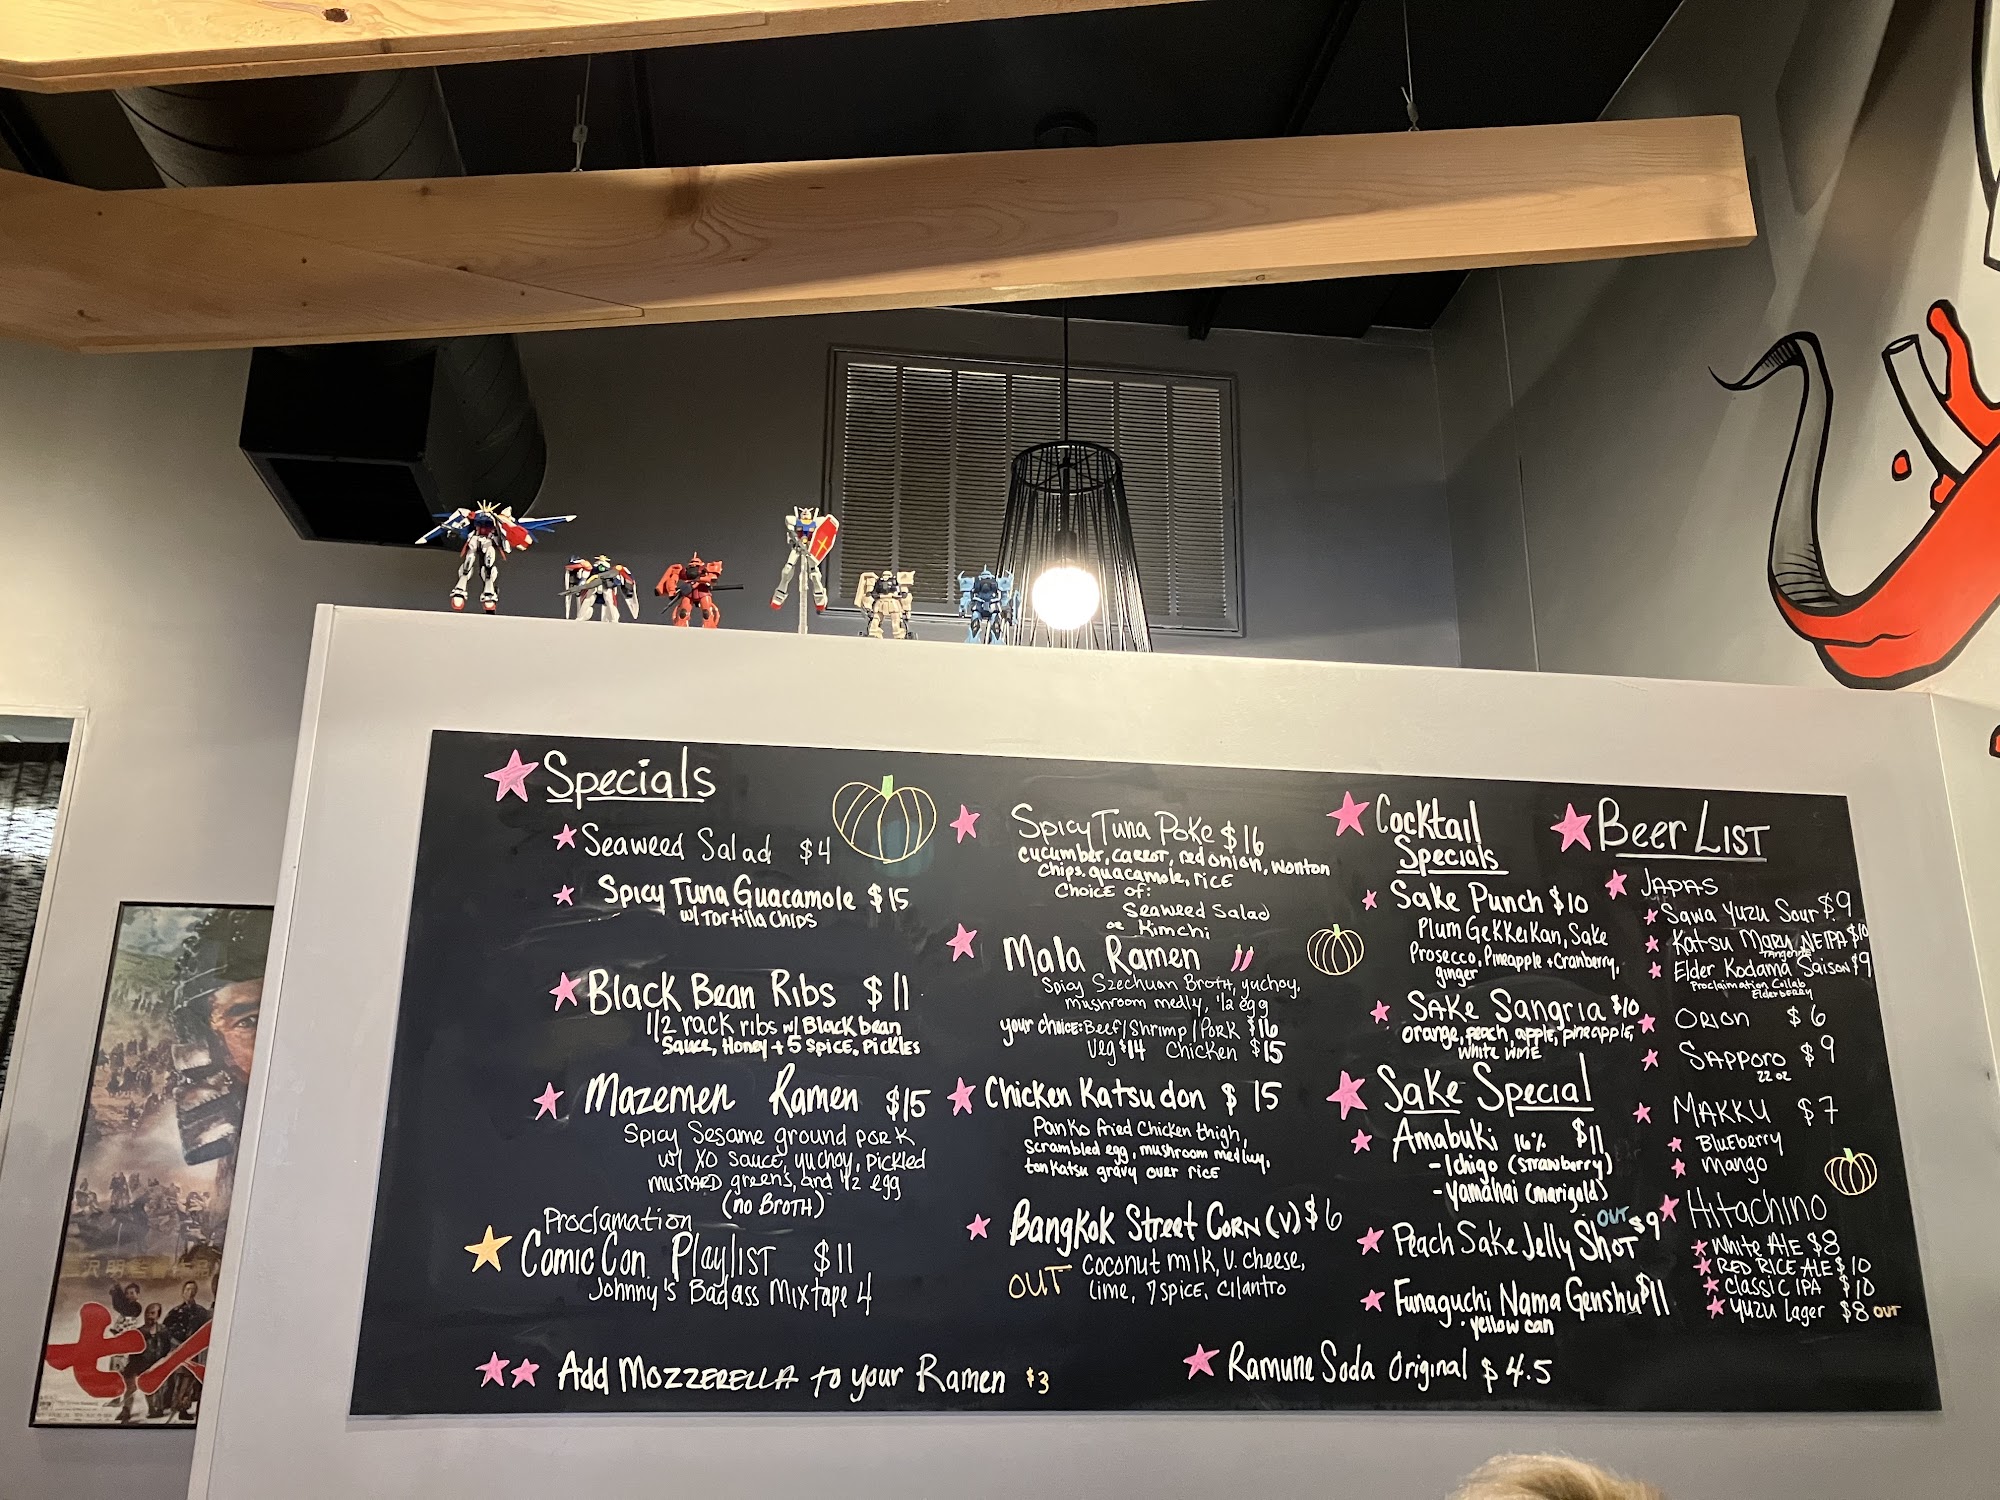 Specials
Seaweed Salad $4
Spicy Tuna Guacamole $15
w/ Tortilla Chips
Black Bean Ribs $11
1/2 rack ribs w/ Black bean
Sauce, Honey + 5 Spice, Pickles
Mazemen Ramen $15
Spicy Sesame ground pork
w/ XO sauce, yuchoy, pickled
mustard greens, and 1/2 egg
(no Broth)
Proclamation
Comic Con Playlist $11
Johnny's Badass Mixtape 4
Add Mozzerella to your Ramen $3
Spicy Tuna Poke $16
cucumber, carrot, red onion, wonton
chips, guacamole, rice
Choice of:
Seaweed Salad
or Kimchi
Mala Ramen
Spicy Szechuan Broth, yuchoy,
mushroom medly, 1/2 egg
your choice: Beef/Shrimp/Pork $16
Veg $14 Chicken $15
Chicken Katsudon $15
Panko fried Chicken thigh,
scrambled egg, mushroom medley,
tonkatsu gravy over rice
Bangkok Street Corn (V) $6
OUT coconut milk, v. cheese,
lime, 7 spice, cilantro
Ramune Soda Original $4.5
Cocktail
Specials
Sake Punch $10
Plum Gekkeikan, Sake
Prosecco, Pineapple + Cranberry,
ginger
Sake Sangria $10
orange, peach, apple, pineapple,
white wine
Sake Special
Amabuki 16% $11
- Ichigo (strawberry)
- Yamahai (marigold)
OUT
Peach Sake Jelly Shot $9
Funaguchi Nama Genshu $11
· yellow can
Beer List
Japas
Sawa Yuzu Sour $9
Katsu Mary NEIPA $10
Tangerine
Elder Kodama Saison $9
Proclaimation Collab
Elderberry
Orion $6
Sapporo $9
22 oz
Makku $7
Blueberry
Mango
Hitachino
White Ale $8
Red Rice Ale $10
Classic IPA $10
Yuzu Lager $8 OUT
七人